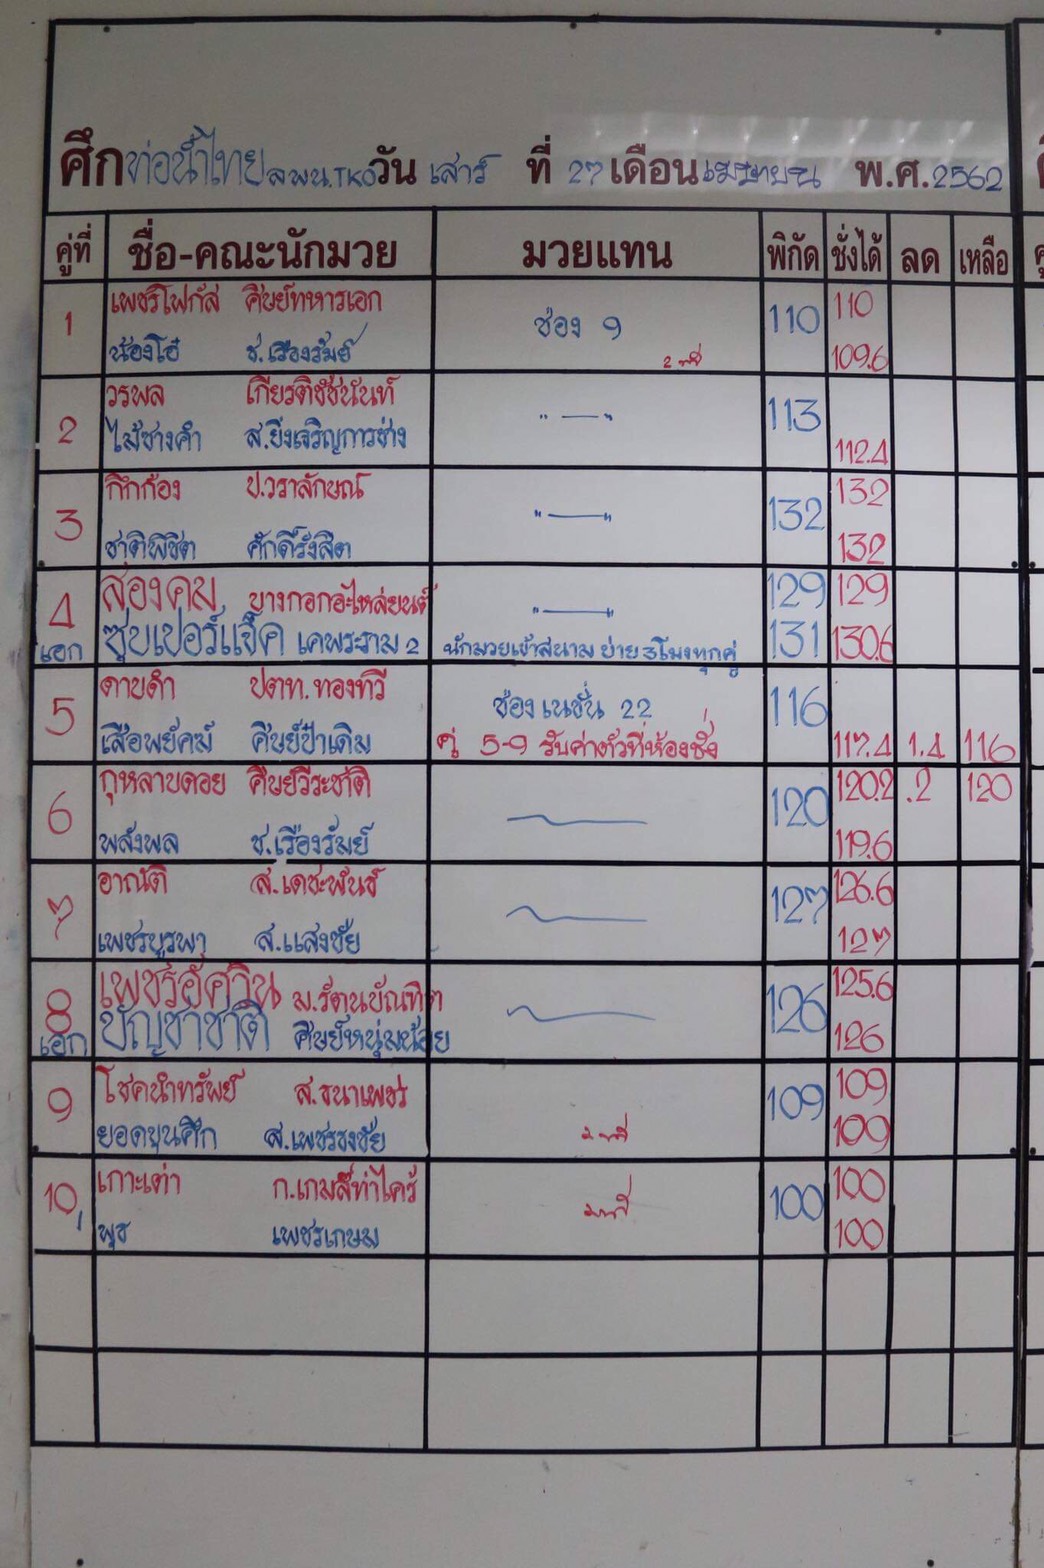 ศึกท่อน้ำไทยลุมพินีTKOวัน เสาร์ ที่ 27 เดือนเมษายน พ.ศ.2562
คู่ที่ ชื่อ-คณะนักมวย มวยแทน พิกัด ชั่งได้ ลด เหลือ
1 เพชรโฟกัส ศิษย์ทหารเอก ช่อง 9 110 110
น้องโอ๋ ช.เรืองรัมย์ 109.6
2 วรพล เกียรติชัชนันท์ " — " 113
ไม้ซางคำ ส.ยิ่งเจริญการช่าง 112.4
3 กึกก้อง ป.วราลักษณ์ " — " 132 132
ชาติพิชิต ศักดิ์รังสิต 132
4 สองคม บางกอกอะไหล่ยนต์ " — " 129 129
เอก ซุปเปอร์แจ็ค เคพระราม 2 นักมวยเข้าสนาม บ่าย 3 โมงทุกคู่ 131 130.6
5 ดาบดำ ปตท.ทองทวี ช่อง เนชั่น 22 116
เสือพยัคฆ์ ศิษย์ป๋าเดิม คู่ 5-9 รับค่าตัวที่ห้องชั่ง 117.4 1.4 116
6 กุหลาบดอย ศิษย์วีระชาติ 120 120.2 .2 120
พลังพล ช.เรืองรัมย์ 119.6
7 อาณัติ ส.เดชะพันธ์ 127 126.6
เพชรบูรพา ส.แสงชัย 127
8 เพชรอัศวิน ม.รัตนบัณฑิต 126 125.6
เอก บัญชาชาติ ศิษย์หนุ่มน้อย 126
9 โชคนำทรัพย์ ส.ธนาเพชร 109 109
ยอดขุนศึก ส.เพชรธงชัย 109
10 เกาะเต่า ก.เกมส์ท่าไคร้ 100 100
พุธ เพชรเกษม 100